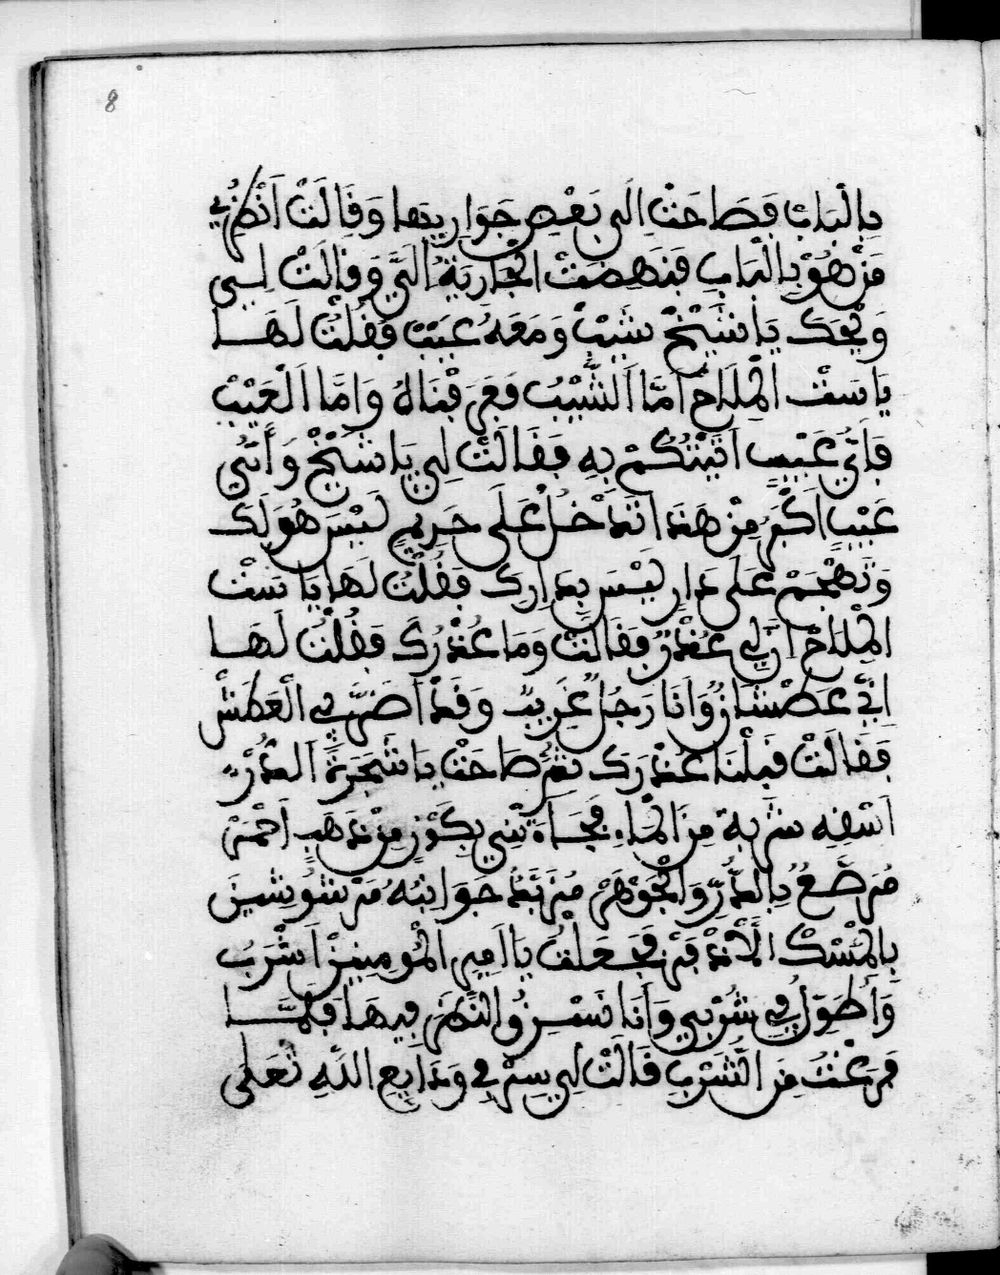 8
بِالْبَابْ فَصَاحَتْ اِلَى بَعْضِ جَوَارِيهَا وَقَالَتْ اَنْظُرِي
مَنْ هُوَ بِالْبَابِ فَنَهِضَتْ الْجَارِيَةُ اِلَيَّ وَقَالَتْ لِي
وَيْحَكَ يَا شَيْخْ شَيْبْ وَمَعَهُ عَيْبْ فَقُلْتُ لَهَا
يَا سَتْ الْمِلَاحْ اَمَّا الشَّيْبُ فَعَرَفْنَاهُ وَاَمَّا الْعَيْبْ
فَاَيُّ عَيْبٍ اَتَيْتُكُمْ بِهِ فَقَالَتْ لِي يَا شَيْخْ وَأَيُّ
عَيْبٍ اَكْبَرُ مِنْ هَذَا تَدْخُلْ عَلَى حَرِيمٍ لَيْسَ هُوَ لَكَ
وَتَهْجَمْ عَلَى دَارٍ لَيْسَ بِدَارِكَ فَقُلْتُ لَهَا يَا سَتْ
الْمِلَاحْ اِنَّ لِي عُذْرٌ فَقَالَتْ وَمَا عُذْرُكَ فَقُلْتُ لَهَا
اِنِّي عَطْشَانُ وَاَنَا رَجُلٌ غَرِيبٌ وَقَدْ اَضَرَّ بِي الْعَطَشْ
فَقَالَتْ قَبِلْنَا عُذْرَكَ ثُمَّ صَاحَتْ يَا شَجَرَةَ الدُّرّْ
اَسْقِهِ شَرْبَةً مِنَ الْمَاءِ فَجَاءَتْنِي بِكَوْزٍ مِنْ ذَهَبٍ اَحْمَرْ
مُرَصَّعُ بِالدُّرِّ وَالْجَوْهَرْ مُرَبَّعَةُ جَوَانِبُهُ مَرْشُوشِينَ
بِالْمَسْكْ الْأَذْفَرْ فَجَعَلْتُ يَا اَمِيرَ الْمُومِنِينْ اَشْرَبُ
وَأُطَوِّلُ فِي شُرْبِي وَأَنَا نَسْرِقُ النَّظَرَ فِيهَا فَلَمَّا
فَرَغْتُ مِنَ الشُّرْبِ قَالَتْ لِي سِرْ فِي وَدَايِعِ اللَّهِ تَعَلَى